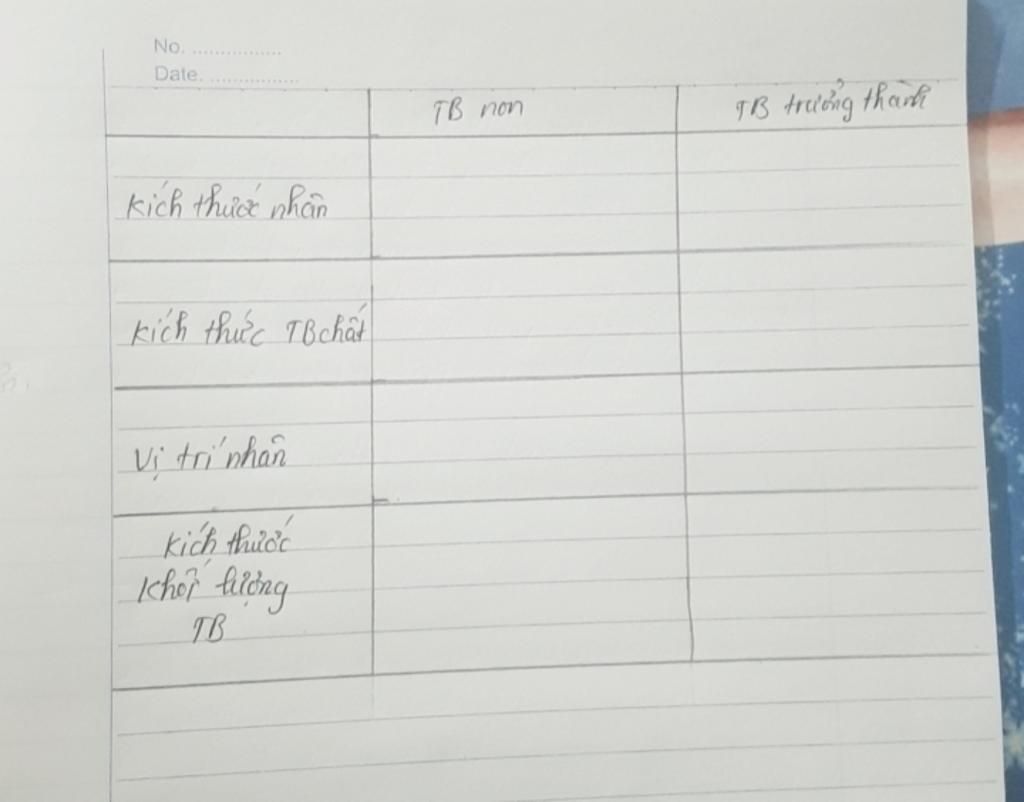 No. ................
Date. ................
TB non
TB trưởng thành
Kích thước nhân
Kích thức TB chất
Vị trí nhân
Kích thước
Khối lượng
TB